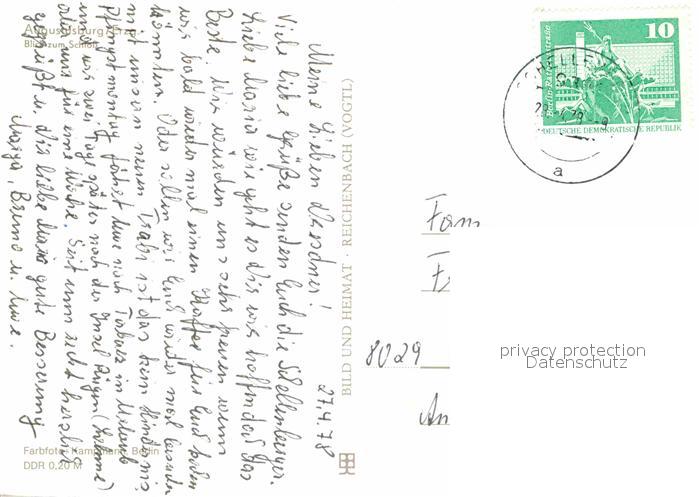 Augustusburg/Erzg.
Blick zum Schloß
27.4.78
Meine Lieben Dresdner!
Viele liebe Grüße senden Euch die Schellenberger.
Liebe Maria wie geht es Dir, wir hoffen doch das
Beste. Wir würden uns sehr freuen wenn
wir bald wieder mal einen Koffer für Euch haben
könnten. Oder sollen wir Euch wieder mal besuchen
mit unsern neuen Trabi ist das kein Hindernis.
Pfingstmontag fährst Uwe nach in Urlaub
und wir zwei Tage später nach der Insel Rügen
oder uns für eine Woche. Seit nun recht herzlich
gegrüßt u. Dir liebe Maria gute Besserung
Maria, Bruno u. Uwe.
Farbfoto: Kampmann, Berlin
DDR 0,20 M
BILD UND HEIMAT · REICHENBACH (VOGTL)
10
DEUTSCHE DEMOKRATISCHE REPUBLIK
a
Fam
8029
An
privacy protection
Datenschutz